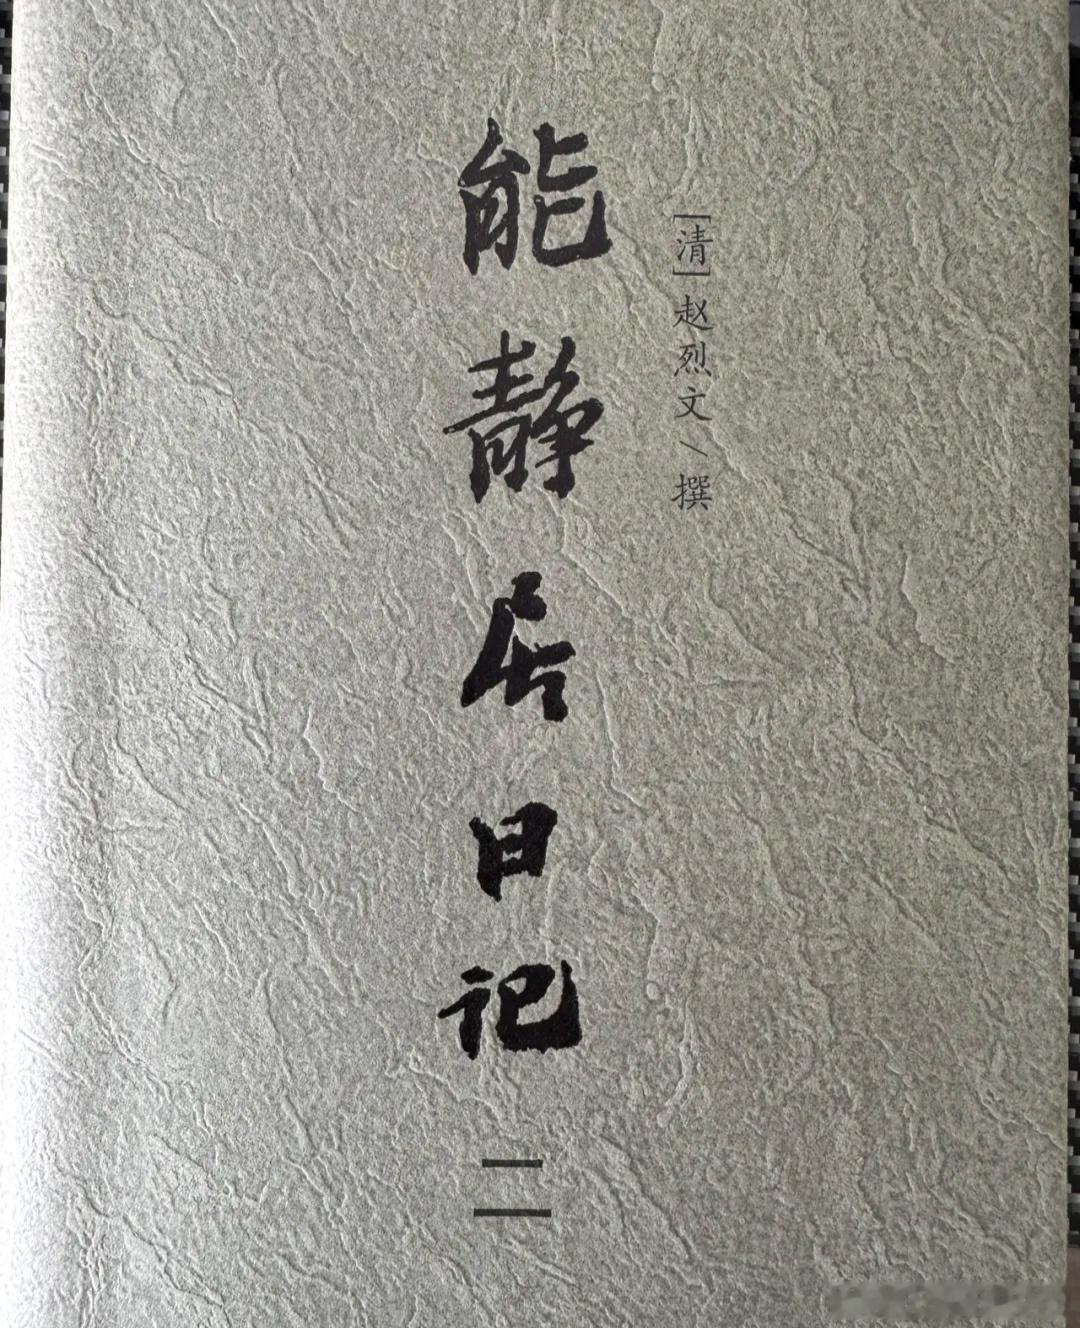 [清]赵烈文＼撰
能静居日记
二